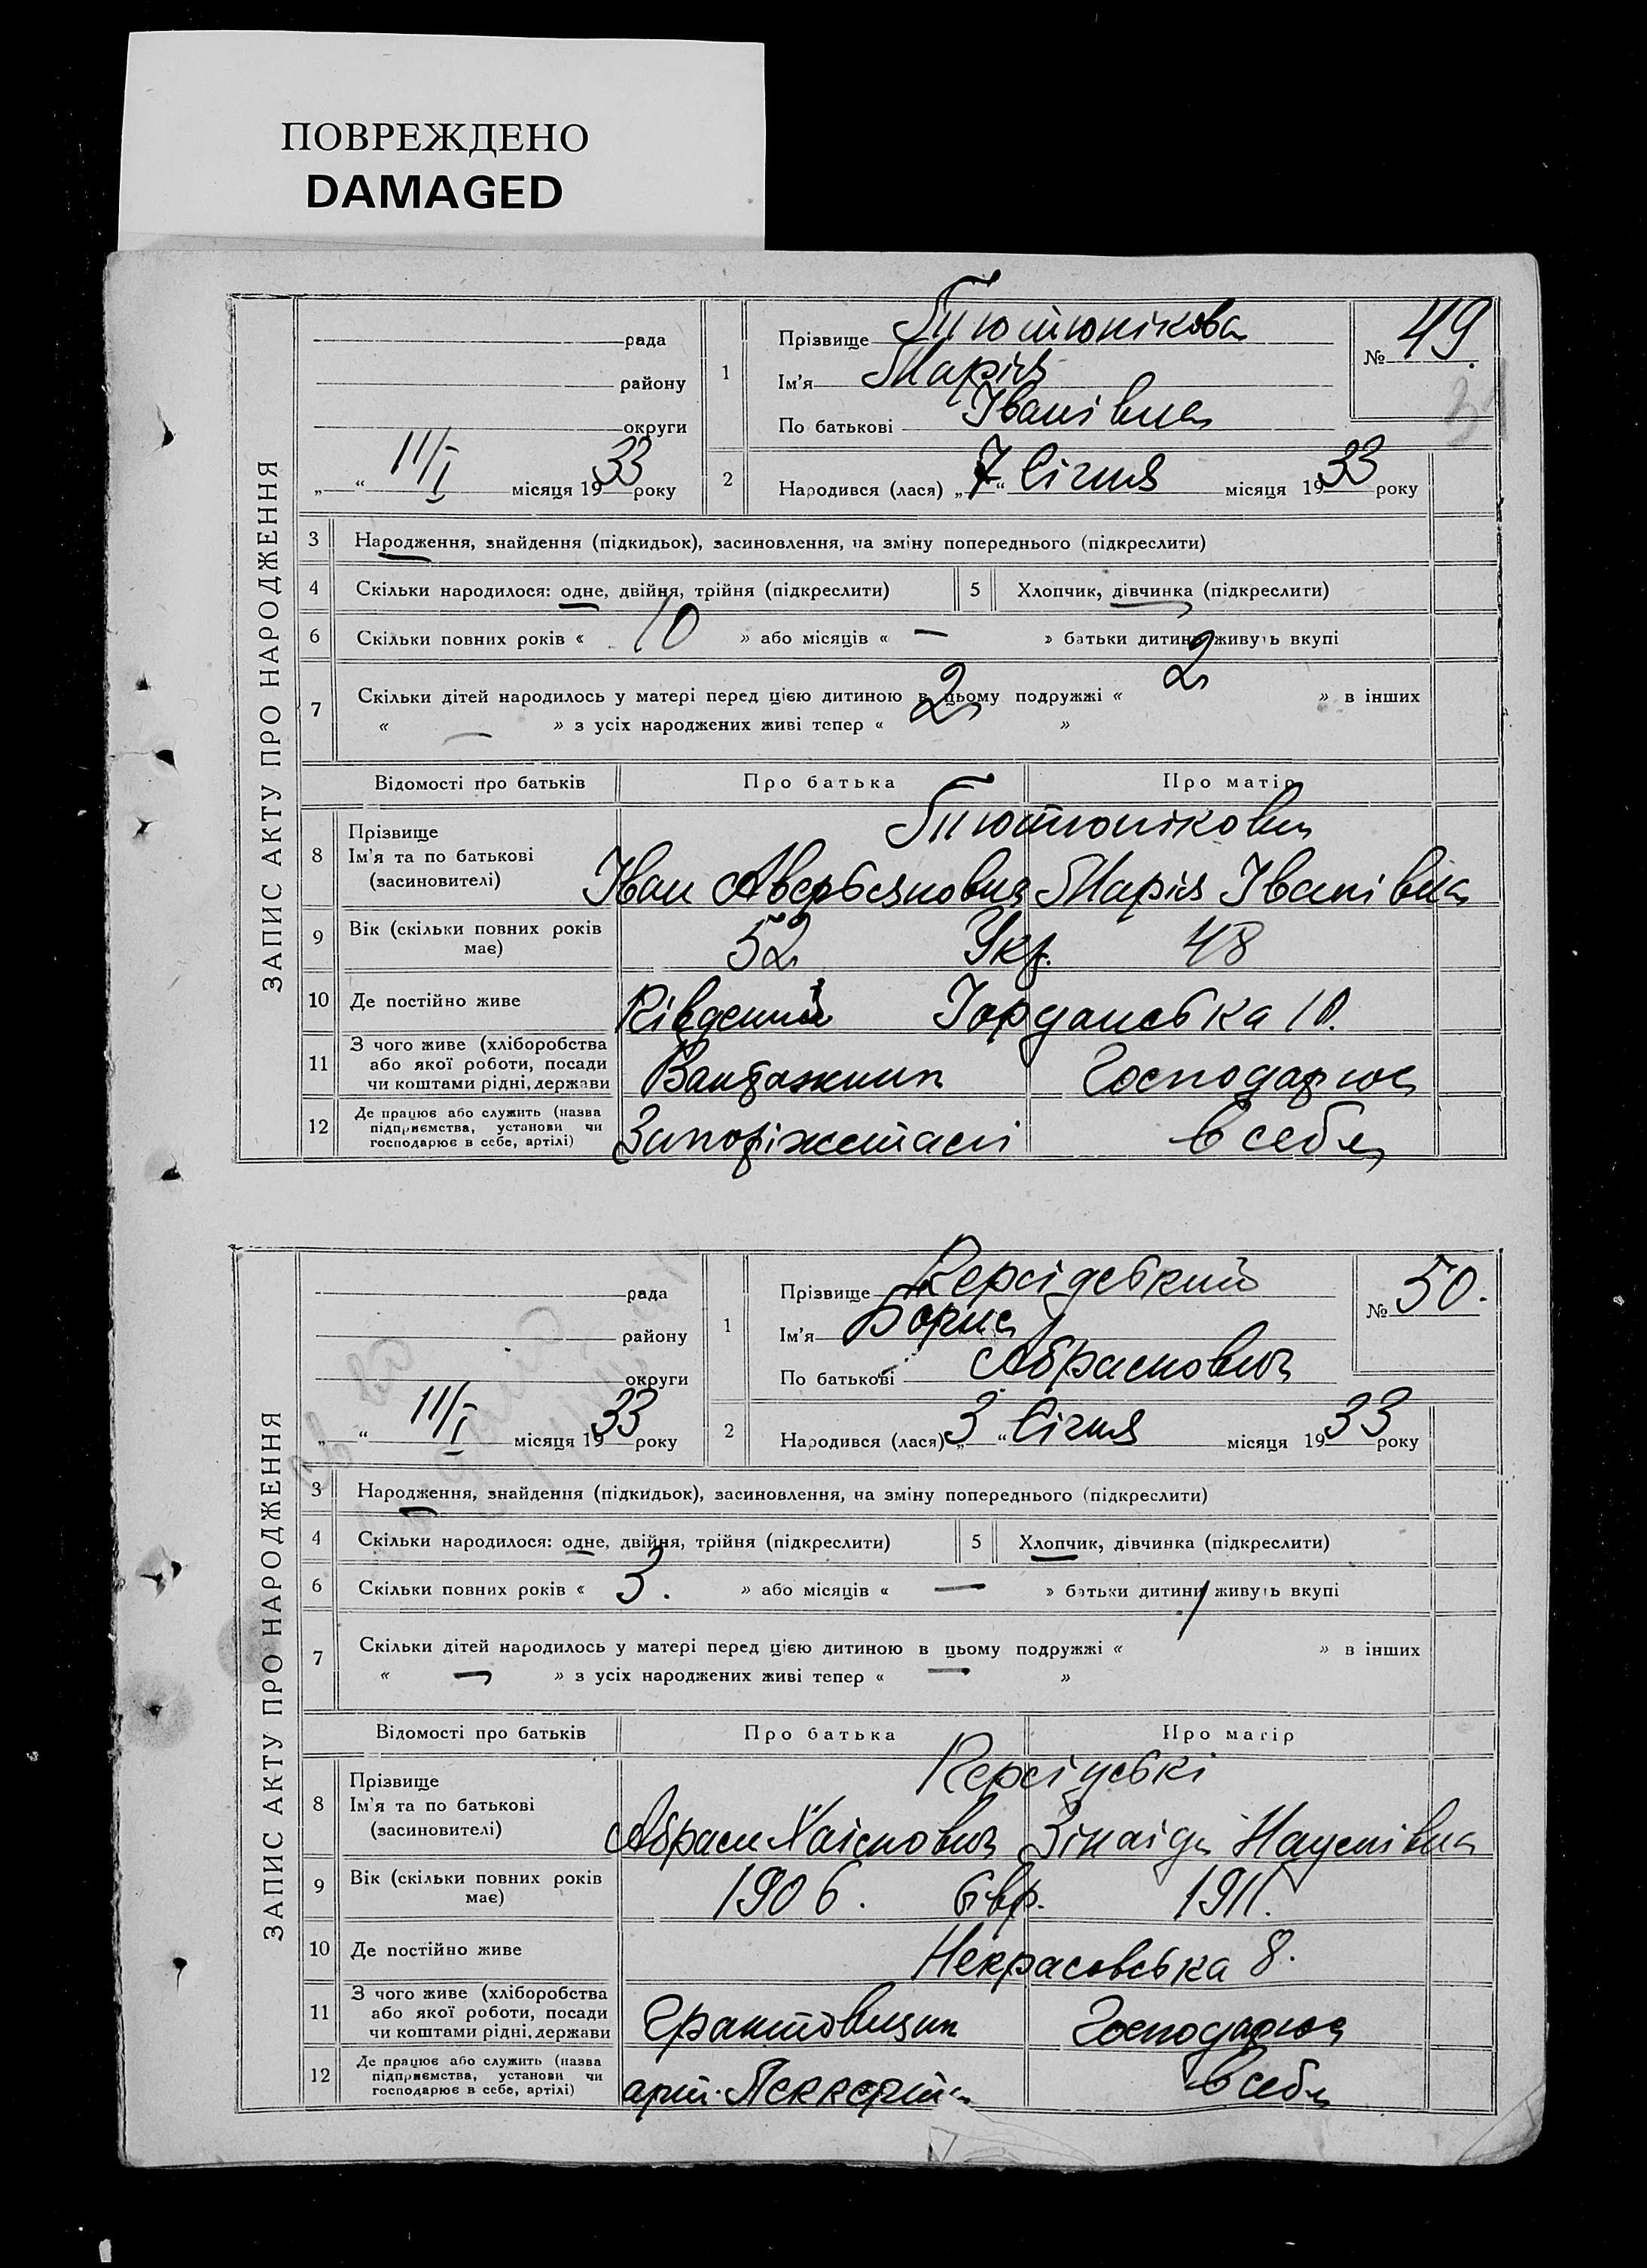 ПОВРЕЖДЕНО
DAMAGED
ЗАПИС АКТУ ПРО НАРОДЖЕННЯ
рада
району
округи
„ “ 11/I місяця 1933 року
1
Прізвище Тютюнікова
Ім'я Марія
По батькові Іванівна
№ 49.
2
Народився (лася) „7“ Січня місяця 1933 року
3 Народження, знайдення (підкидьок), засиновлення, на зміну попереднього (підкреслити)
4 Скільки народилося: одне, двійня, трійня (підкреслити) 5 Хлопчик, дівчинка (підкреслити)
6 Скільки повних років « 10 » або місяців « — » батьки дитини живуть вкупі
7 Скільки дітей народилось у матері перед цією дитиною в цьому подружжі « 2 » в інших
« — » з усіх народжених живі тепер « 2 »
Відомості про батьків Про батька Про матір
8 Прізвище Тютюнікови
Ім'я та по батькові
(засновителі) Іван Марія Іванівна
9 Вік (скільки повних років має) 52 Укр. 48
10 Де постійно живе Південний Іорданська 10.
11 З чого живе (хліборобства або якої роботи, посади чи коштами рідні, держави Вантажник Господарює
12 Де працює або служить (назва підприємства, установи чи господарює в себе, артілі) Запоріжсталі в себе
ЗАПИС АКТУ ПРО НАРОДЖЕННЯ
рада
району
округи
„ “ 11/I місяця 1933 року
1
Прізвище Персідський
Ім'я Борис
По батькові Абрамович
№ 50.
2
Народився (лася) „3“ Січня місяця 1933 року
3 Народження, знайдення (підкидьок), засиновлення, на зміну попереднього (підкреслити)
4 Скільки народилося: одне, двійня, трійня (підкреслити) 5 Хлопчик, дівчинка (підкреслити)
6 Скільки повних років « 3. » або місяців « — » батьки дитини живуть вкупі
7 Скільки дітей народилось у матері перед цією дитиною в цьому подружжі « / » в інших
« — » з усіх народжених живі тепер « — »
Відомості про батьків Про батька Про матір
8 Прізвище Персідські
Ім'я та по батькові
(засиновителі) Абрам Хаімович Зінаіда Наумівна
9 Вік (скільки повних років має) 1906. Євр. 1911.
10 Де постійно живе Некрасовська 8.
11 З чого живе (хліборобства або якої роботи, посади чи коштами рідні, держави Господарює
12 Де працює або служить (назва підприємства, установи чи господарює в себе, артілі) арт. в себе